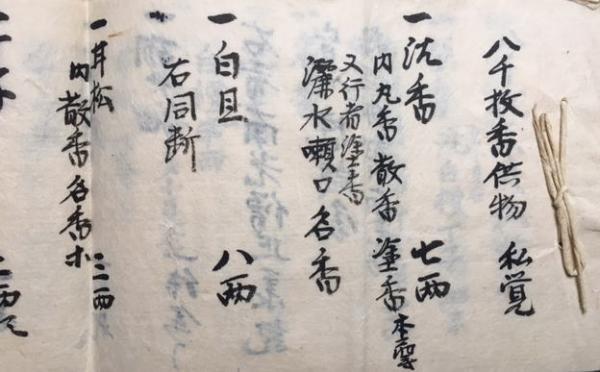 八千枚香供物 私覚
一沈香 七両
内丸香 散香 塗香本尊
又行者塗香
灑水嗽口名香
一白旦 八両
右同断
一甘松
内散香名香ホ